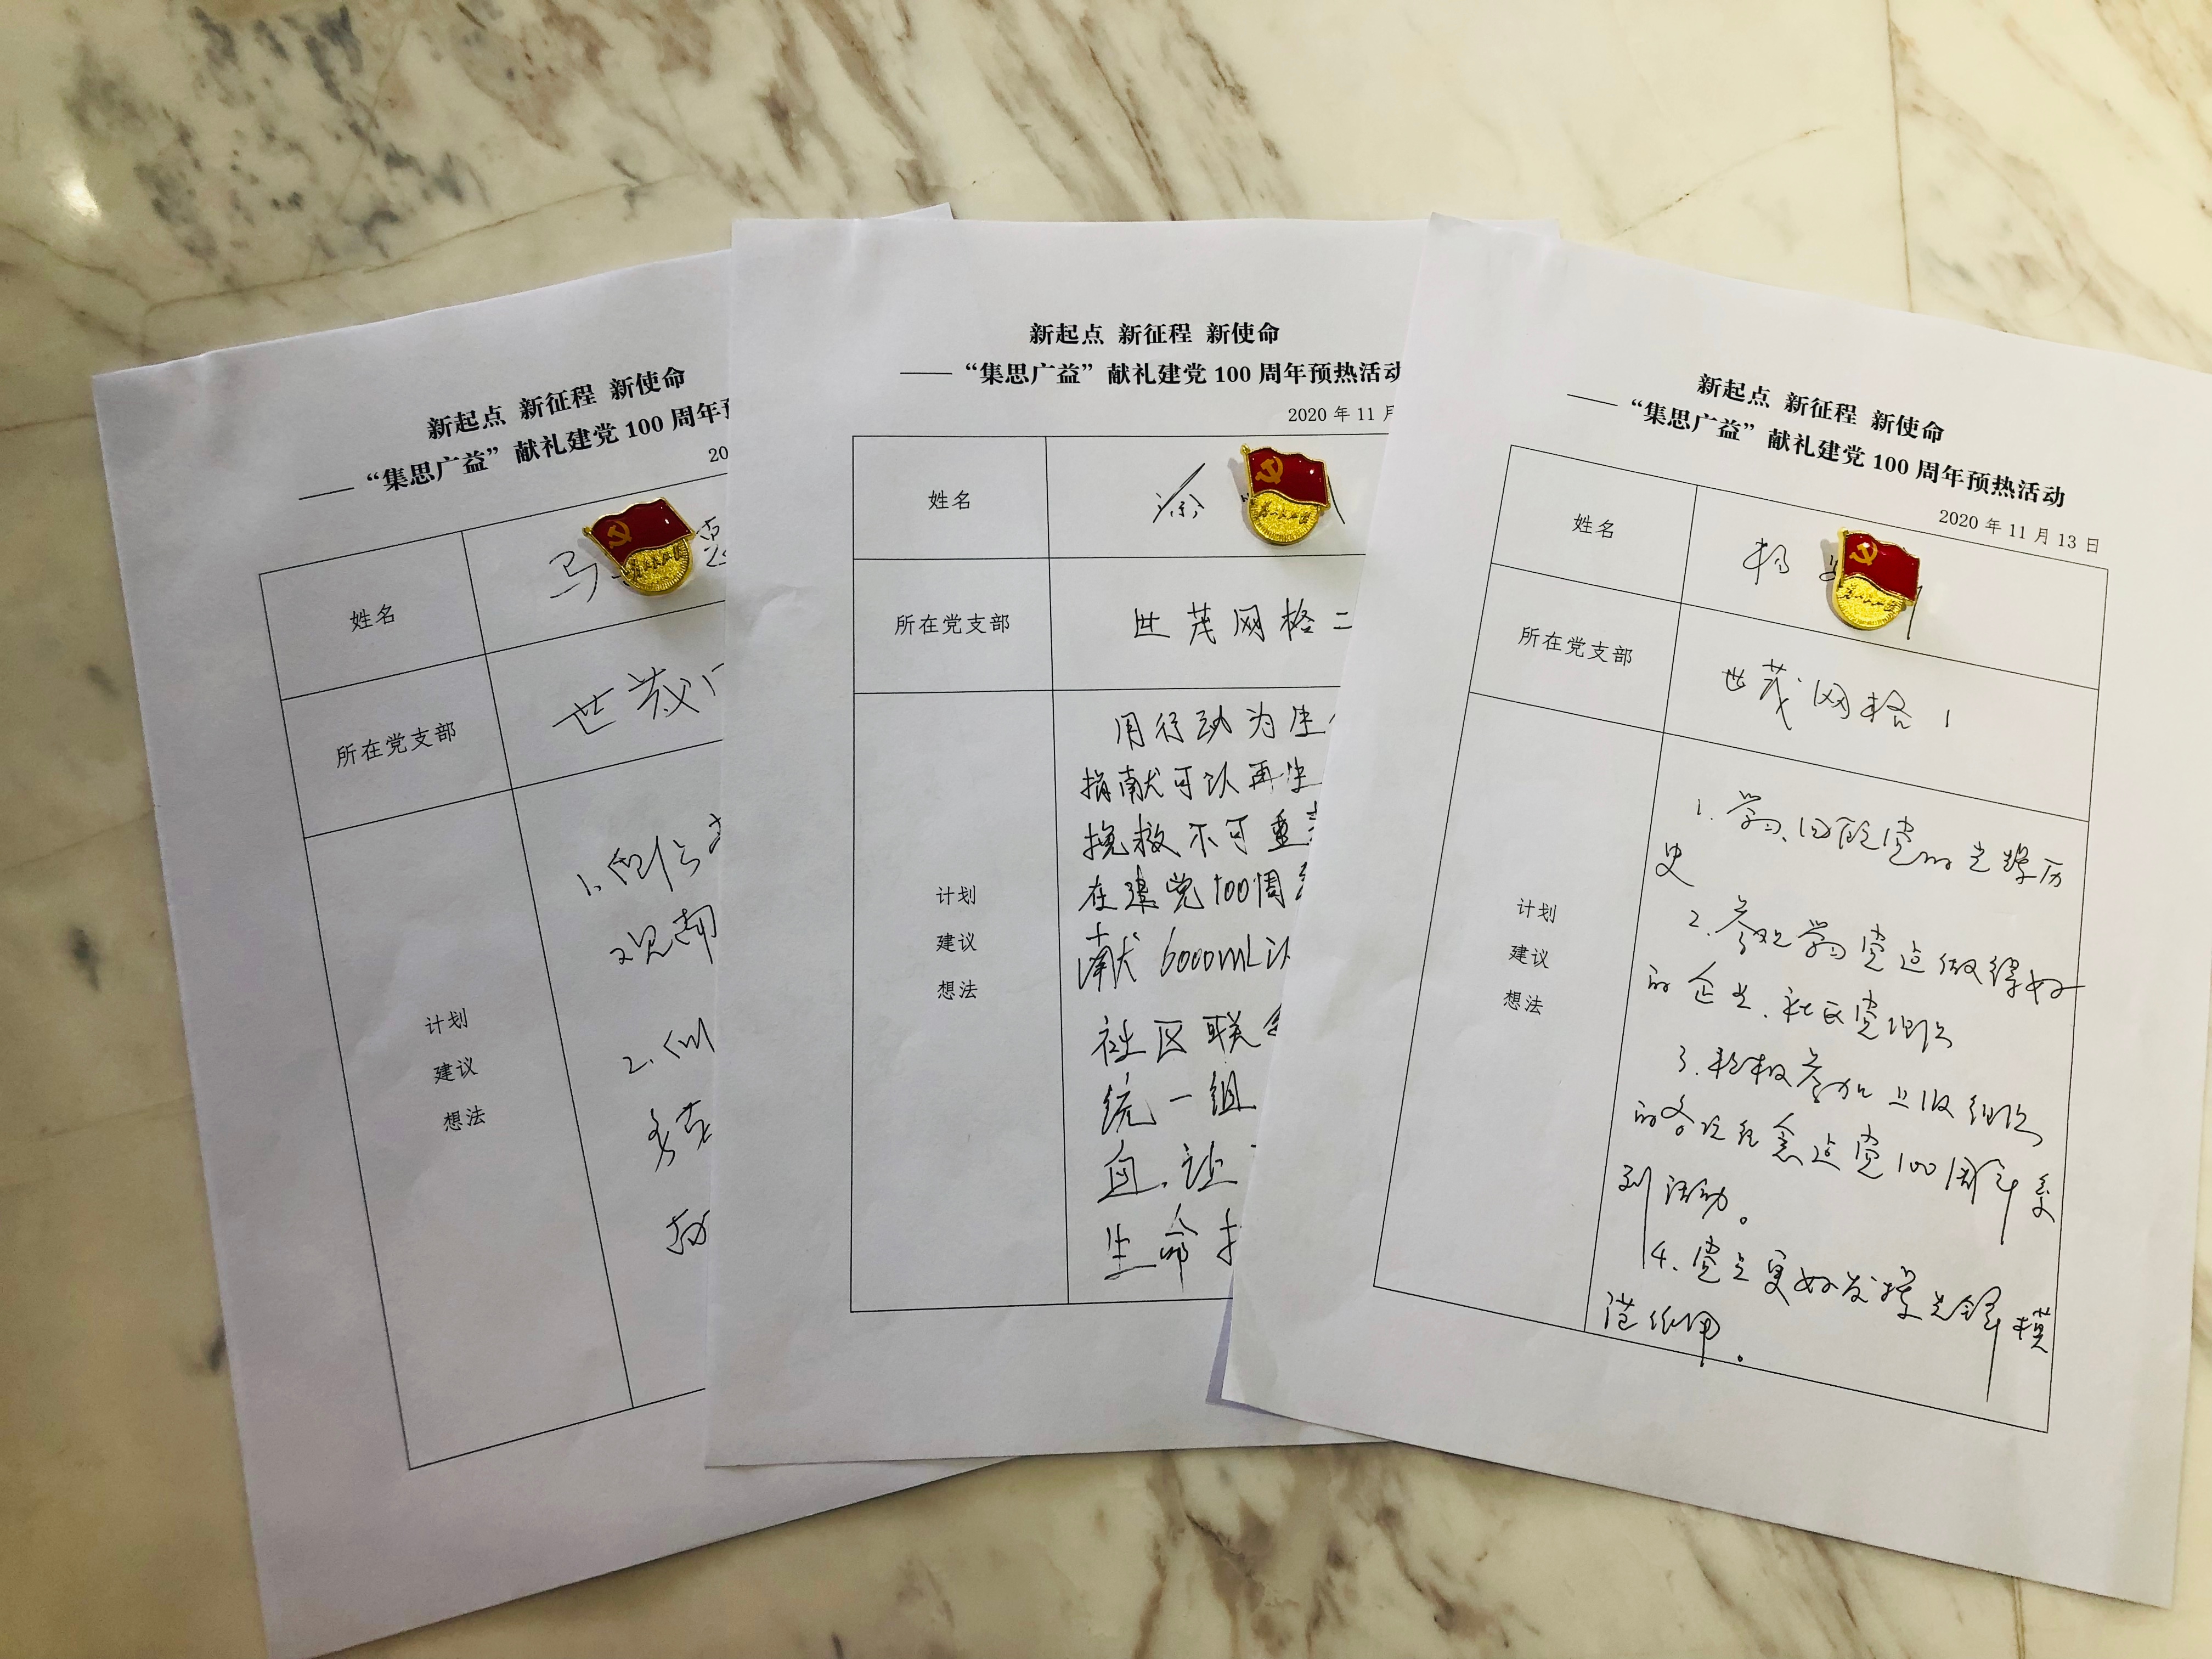 新起点 新征程 新使命
——“集思广益”献礼建党 100 周年预
20
姓名
马
所在党支部
世茂
计划
建议
想法
1.
观
2.
新起点 新征程 新使命
——“集思广益”献礼建党 100 周年预热活动
2020 年 11 月
姓名
徐
所在党支部
世茂网格二
计划
建议
想法
用行动为生
捐献可以再生
挽救不可重
在建党100周
献 6000mL以
社区联合
统一组
血,让
生命
新起点 新征程 新使命
——“集思广益”献礼建党 100 周年预热活动
2020 年 11 月 13 日
姓名
杨
所在党支部
世茂网格 1
计划
建议
想法
1. 学习、回顾党的光辉历
史
2. 参观学习党建做得好
的企业、社区党组织
3. 积极参加上级组织
的各项纪念建党100周年系
列活动。
4. 党员更好发挥先锋模
范作用。